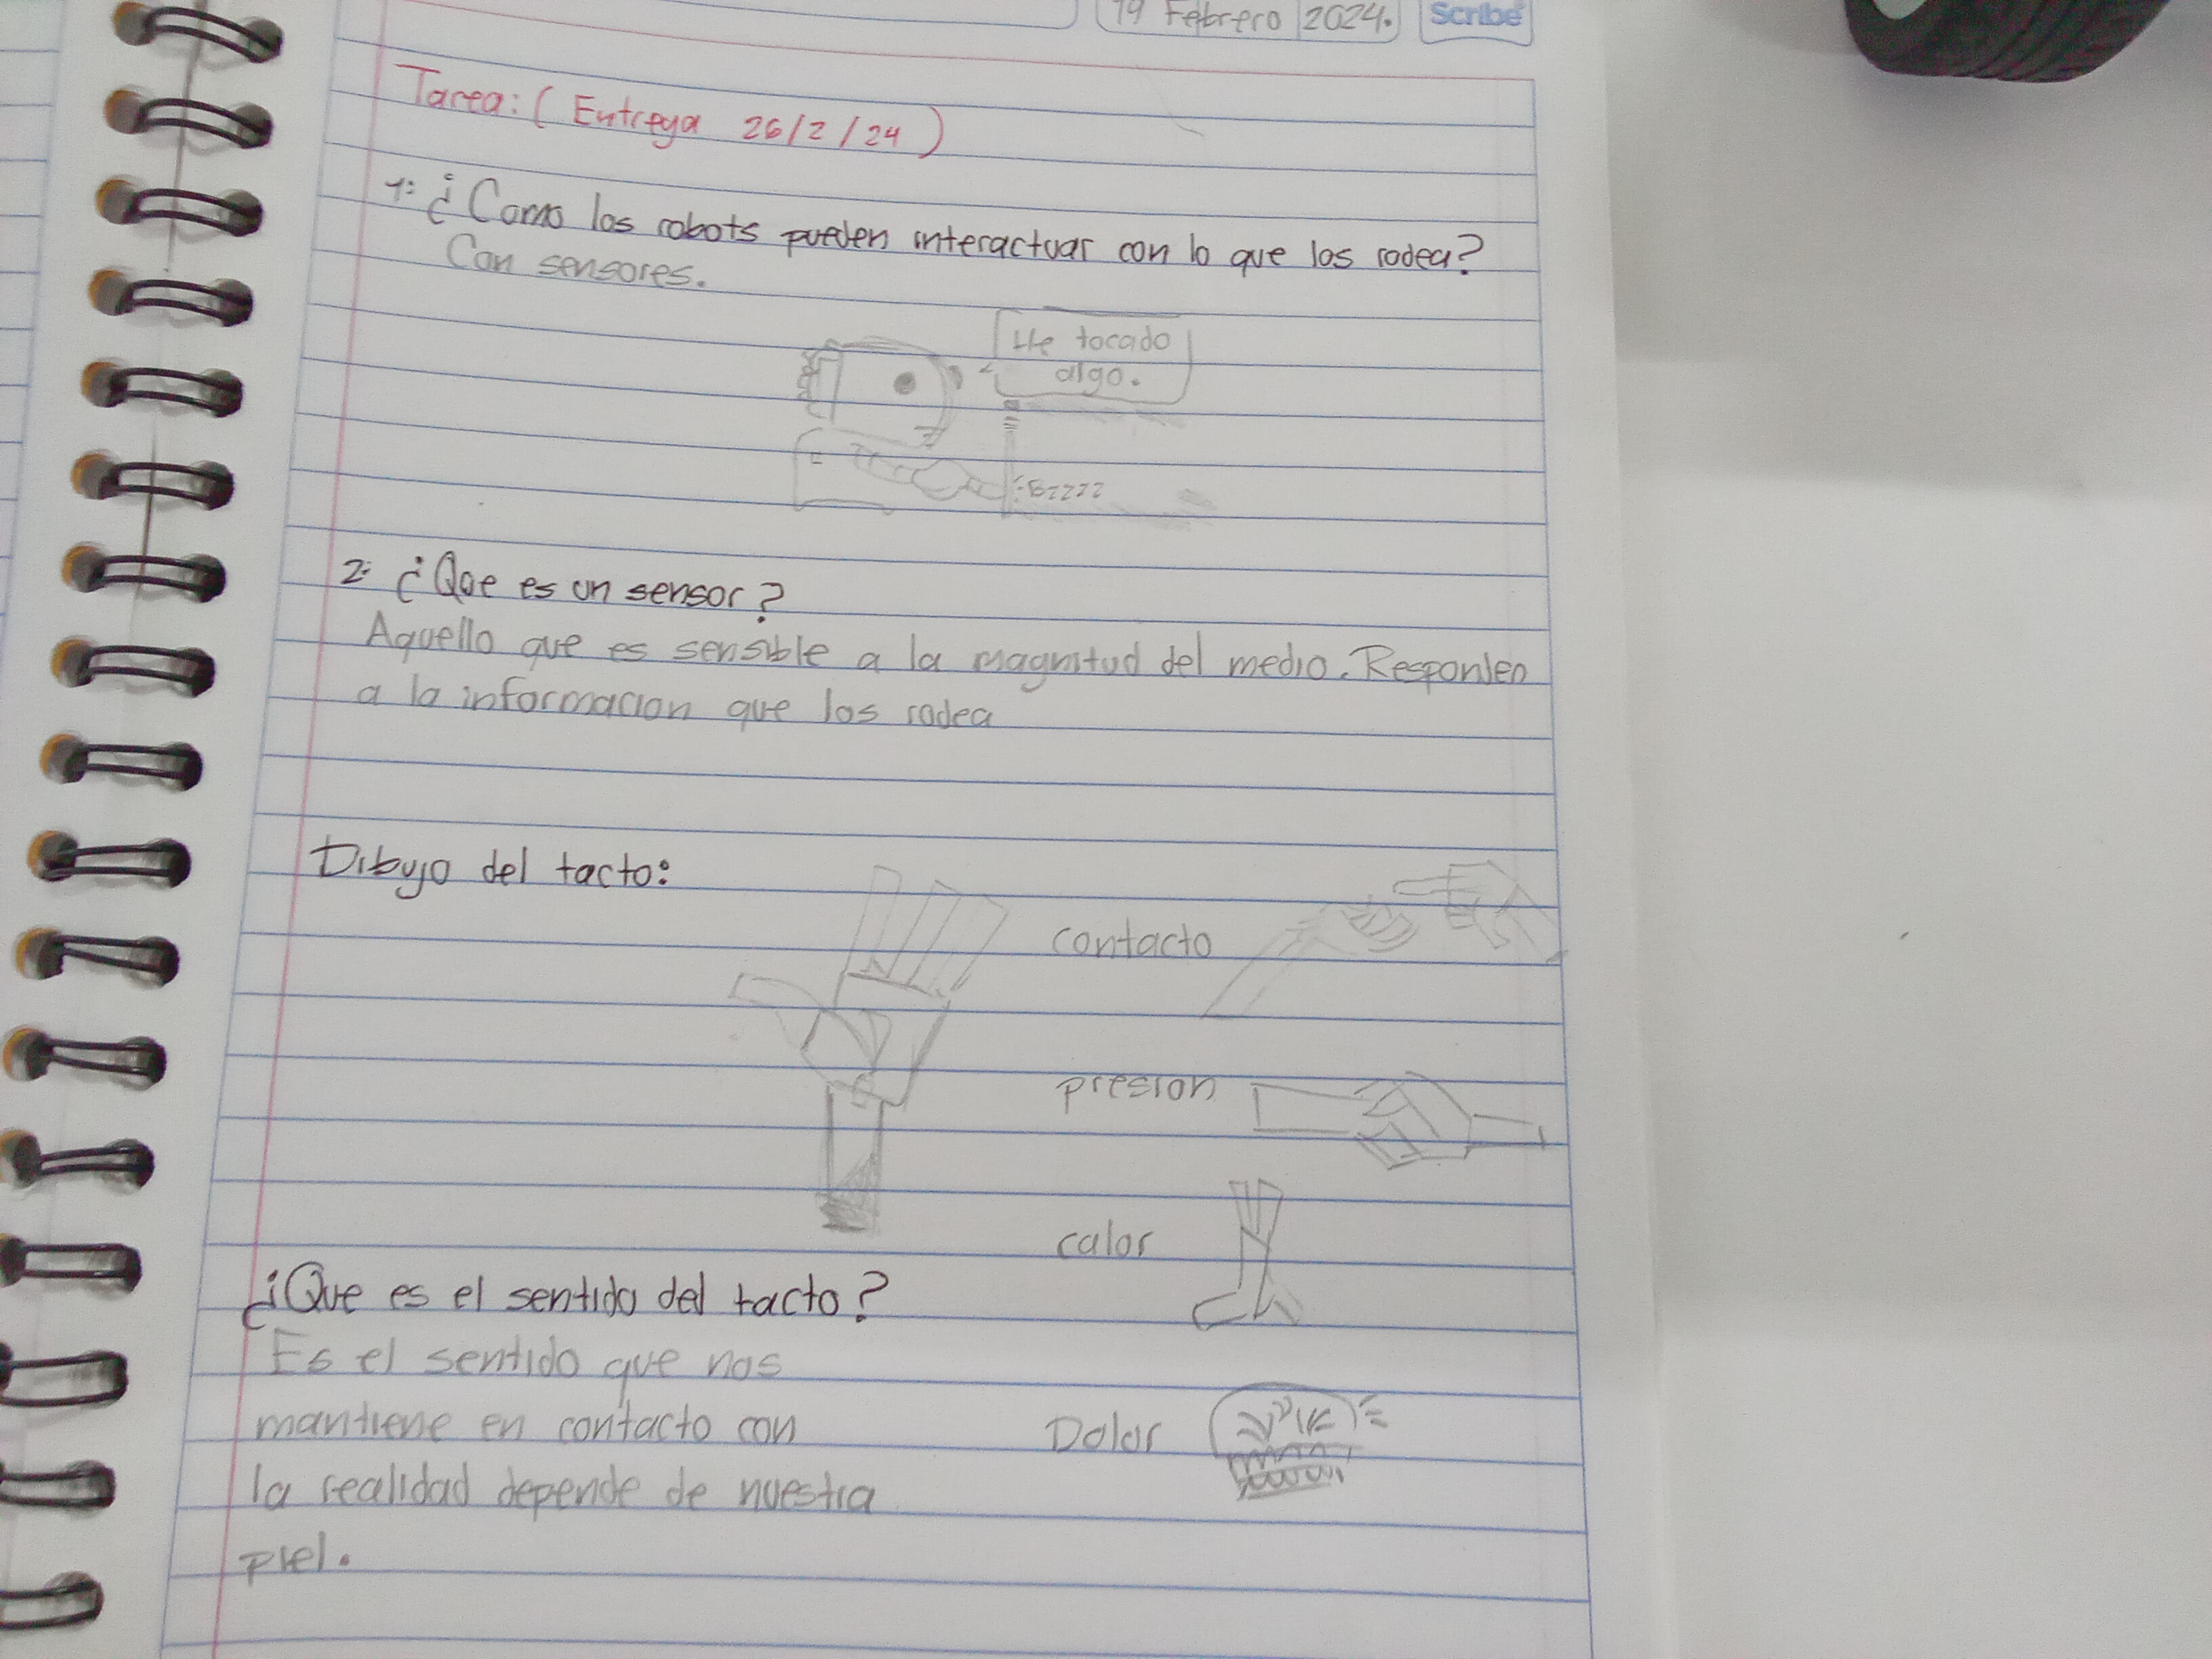 19 Febrero 2024.
Scribe
Tarea: ( Entrega 26/2/24 )
1: ¿Como los robots pueden interactuar con lo que los rodea?
Con sensores.
He tocado
algo.
Bzzzz
2: ¿Que es un sensor?
Aquello que es sensible a la magnitud del medio. Responden
a la informacion que los rodea
Dibujo del tacto:
contacto
presion
calor
¿Que es el sentido del tacto?
Es el sentido que nos
mantiene en contacto con
Dolor
la realidad depende de nuestra
piel.